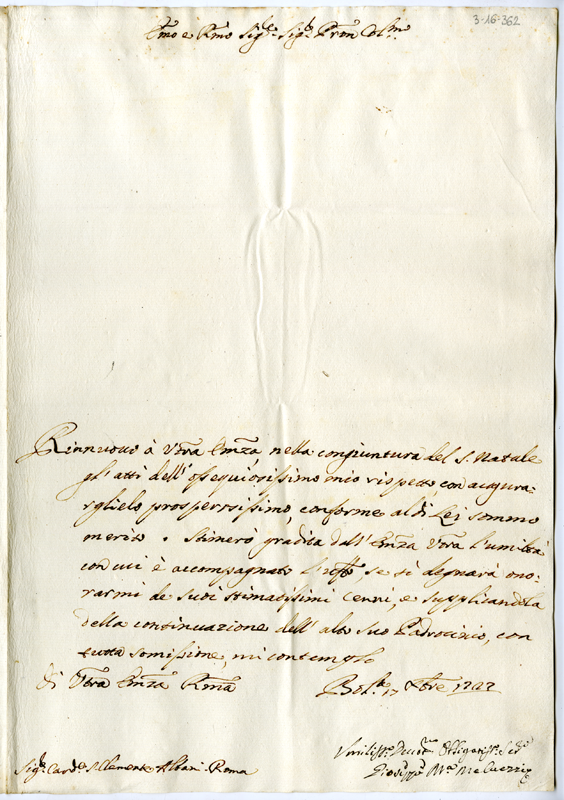 3-16-362
Emo e Rmo Sig.re Sig.re Pron Col.mo
Rinnuovo à Vr̃a Emz̃a nella congiuntura del S. Natale
gl'atti dell'ossequiosissimo mio rispetto, con augura-
rglielo prosperosissimo, conforme al di Lei sommo
merito. Stimerò gradita dall'Emz̃a Vr̃a l'umiltà
con cui è accompagnato l', se si degnarà ono-
rarmi de suoi stimatissimi cenni, e supplicandola
della continuazione dell'alto suo Padrocinio, con
tutta somissione, mi contemplo
Di Vr̃a Emz̃a Rma Bol.a 17 Xbre
Umiliss.o Devot.mo Obligatiss. Ser.re
Sig.re Card.e S. Clemente Albani. Roma Giuseppe M.a